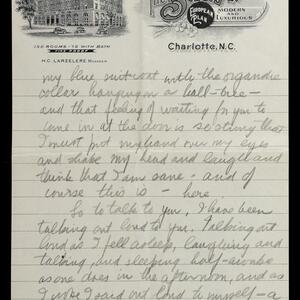 EUROPEAN PLAN
MODERN
AND
LUXURIOUS
150 ROOMS - 75 WITH BATH
FIRE PROOF
H.C. LARZELERE MANAGER
Charlotte, N.C.
my blue suitcoat with the organdie
collar hanging on a hall-tree -
and that feeling of waiting for you to
come in at the door is so strong that
I must put my hand over my eyes
and shake my head and laugh and
think that I am sane - and of
course this is - here
So to talk to you, I have been
talking out loud to you. Talking out
loud as I fell asleep, laughing and
talking, and sleeping half-awake
as one does in the afternoon, and as
I woke I said out loud to myself - a